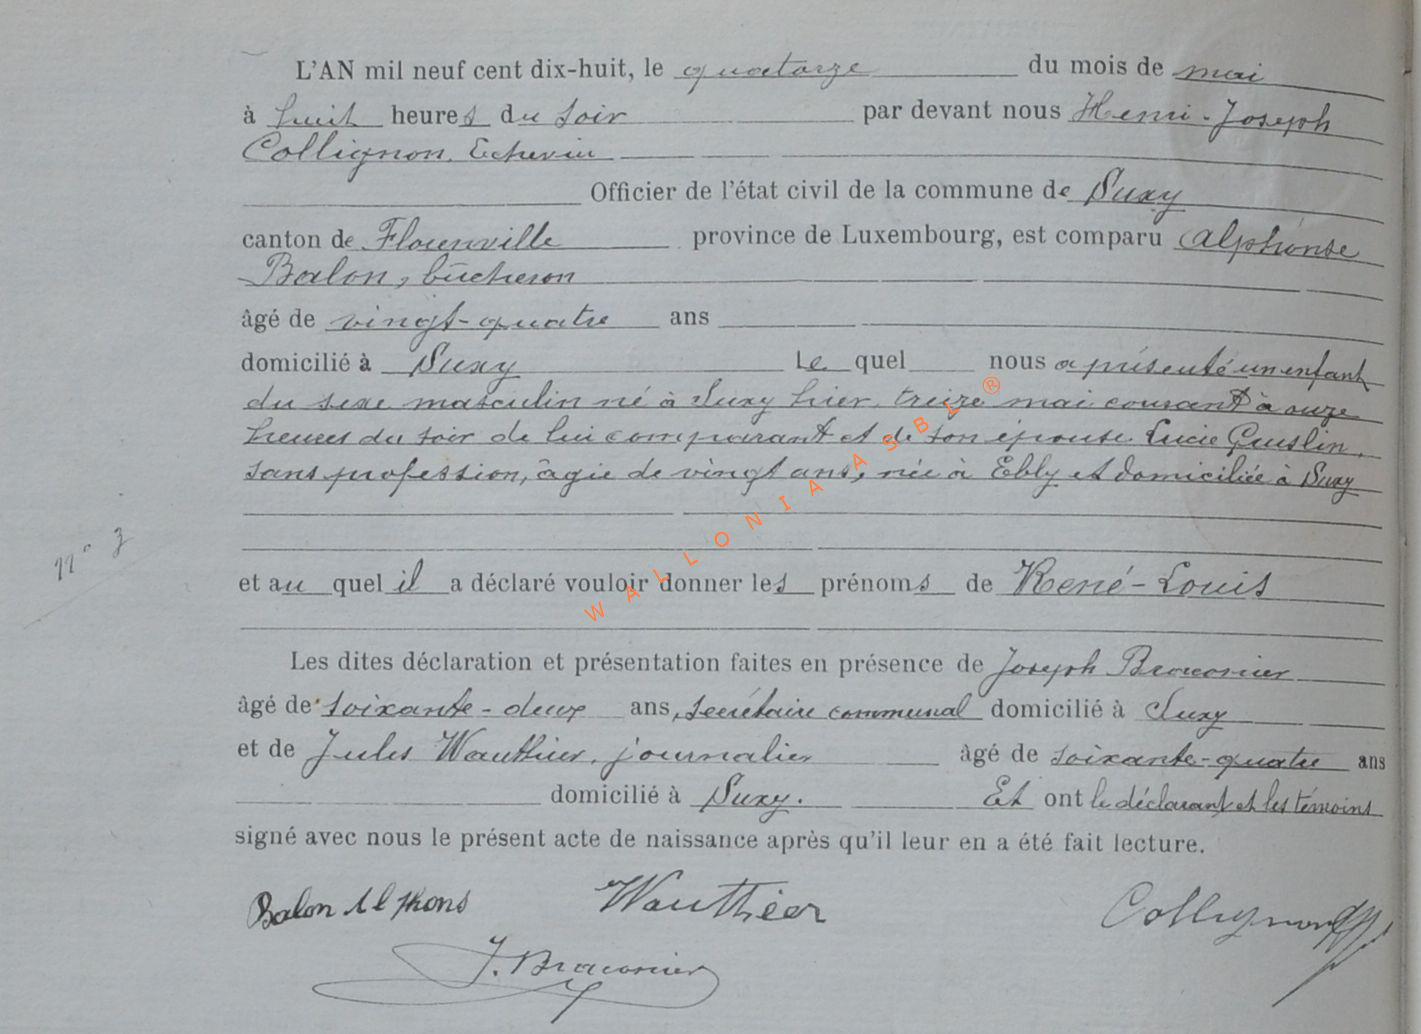 L'AN mil neuf cent dix-huit, le quatorze du mois de mai
à huit heures du soir par devant nous Henri-Joseph
Collignon, Echevin
Officier de l'état civil de la commune de Suxy
canton de Florenville province de Luxembourg, est comparu Alphonse
Balon, bûcheron
âgé de vingt-quatre ans
domicilié à Suxy Le quel nous a présenté un enfant
du sexe masculin né à Suxy hier, treize mai courant à onze
heures du soir de lui comparant et de son épouse Lucie Guislin,
sans profession, âgée de vingt ans, née à Ebly et domiciliée à Suxy
n°
et au quel il a déclaré vouloir donner les prénoms de René-Louis
Les dites déclaration et présentation faites en présence de Joseph Braconier
âgé de soixante-deux ans, secrétaire communal domicilié à Suxy
et de Jules Wauthier, journalier âgé de soixante-quatre ans
domicilié à Suxy. Et ont le déclarant et les témoins
signé avec nous le présent acte de naissance après qu'il leur en a été fait lecture.
Balon Alphons Wauthier Collignon
J. Braconier
WALLONIA ASBL ®